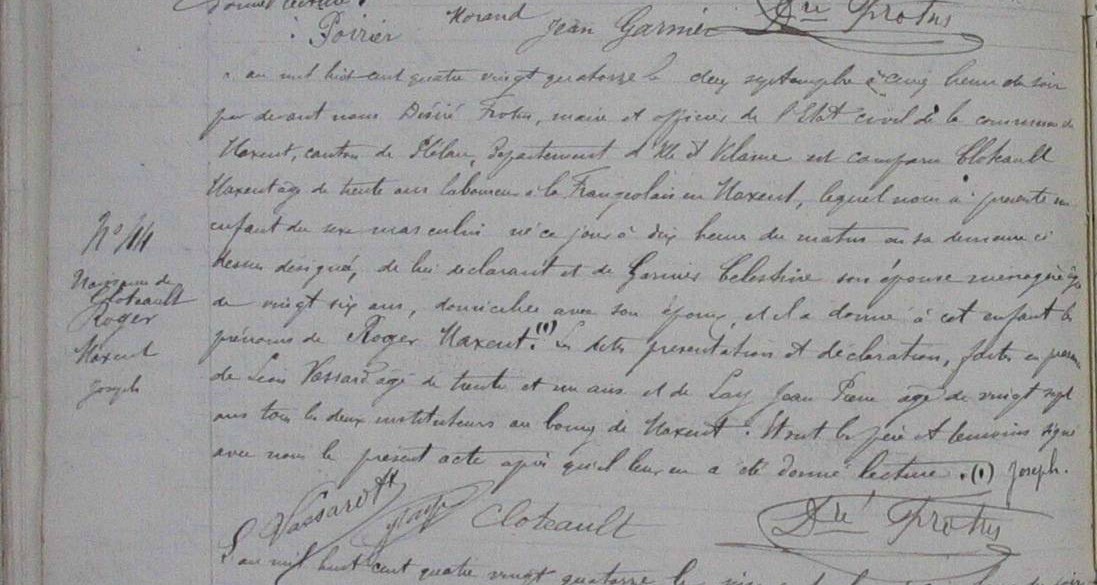 donné lecture.
Poirier Morand Jean Garnier Dré Protus
L'an mil huit cent quatre vingt quatorze le deux septembre à cinq heures du soir
par devant nous Désiré Protus, maire et officier de l'Etat civil de la commune de
Maxent, canton de Plélan, département d'Ille et Vilaine est comparu Cloteault
Maxent âgé de trente ans laboureur à la en Maxent, lequel nous a présenté un
enfant du sexe masculin né ce jour à dix heures du matin en sa demeure ci
dessus désignée, de lui déclarant et de Garnier Célestine son épouse ménagère âgée
de vingt six ans, domiciliée avec son époux, et il a donné à cet enfant les
prénoms de Roger Maxent.(1) Les dites présentation et déclaration, faites en présence
de Léon Vassard âgé de trente et un ans et de Jean Pierre âgé de vingt sept
ans tous les deux instituteurs au bourg de Maxent. Et ont le père et témoins signé
avec nous le présent acte après qu'il leur en a été donné lecture. (1) Joseph.
Cloteault Dré Protus
L'an mil huit cent quatre vingt quatorze le
N° 44
Naissance de
Cloteault
Roger
Maxent
Joseph